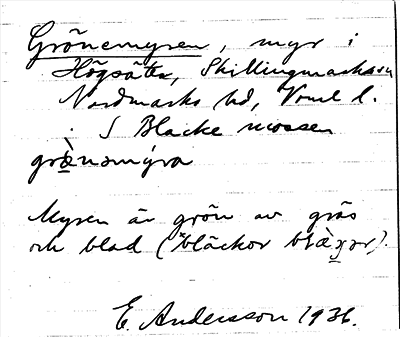 Grönemyren, myr i
Högsäter, Skillingmarks sn
Nordmarks hd, Vrml l.
. S Blacke mossen
græ̀nəmýra
Myren är grön av gräs
och blad (*bläckor blæ̀χər).
E. Andersson 1936.